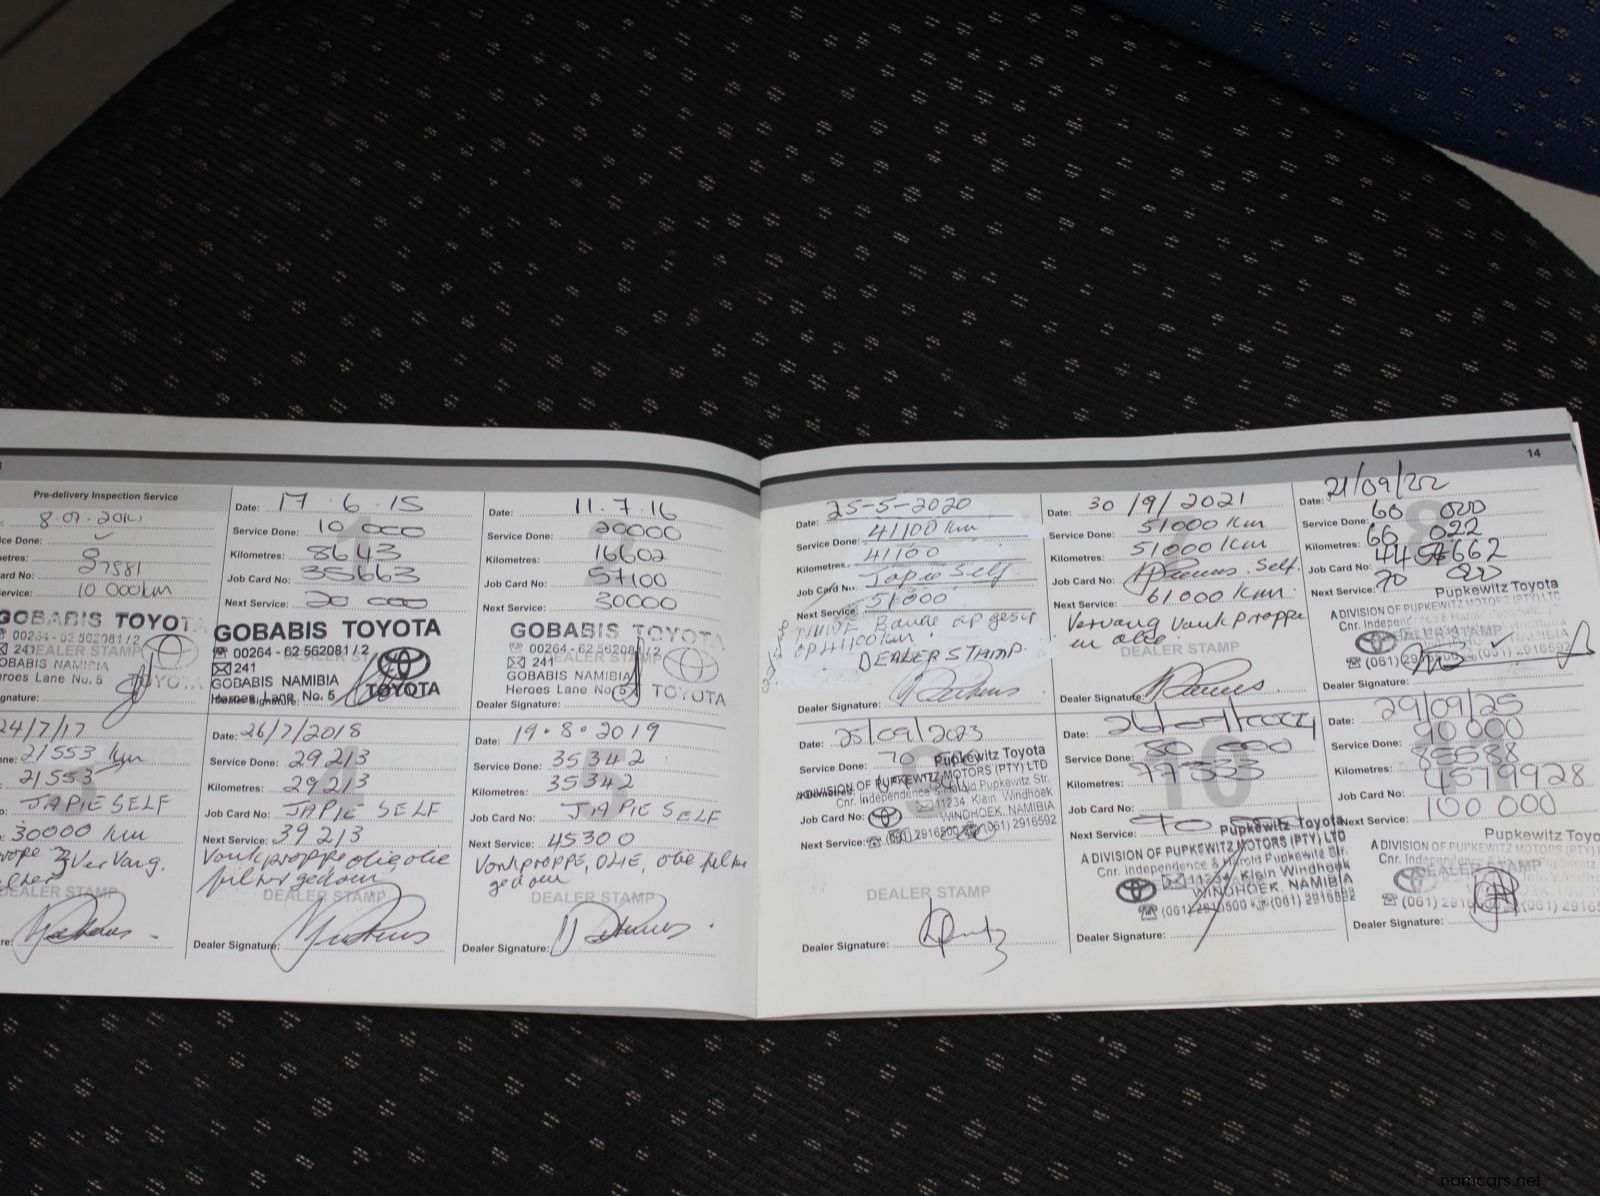 Pre-delivery Inspection Service
8.09.2014
ce Done:
etres:
ard No: 87581
ervice: 10 000km
GOBABIS TOYOT
00264 - 62 562081 / 2
241 DEALER STAMP
OBABIS NAMIBIA
Heroes Lane No. 5 TOYOTA
gnature:
Date: 17.6.15
Service Done: 10 000
Kilometres: 8643
Job Card No: 35663
Next Service: 20 000
GOBABIS TOYOTA
00264 - 62 562081 / 2
241
GOBABIS NAMIBIA
Heroes Lane. No. 5 TOYOTA
Dealer Signature:
Date: 11.7.16
Service Done: 20000
Kilometres: 16602
Job Card No: 57100
Next Service: 30000
GOBABIS TOYOTA
00264 - 62 562081 / 2
241 DEALER STAMP
GOBABIS NAMIBIA
Heroes Lane No. 5 TOYOTA
Dealer Signature:
24/7/17
one: 21553 km
21553
JAPIE SELF
30000 km
Vervang.
DEALER STAMP
re:
Date: 26/7/2018
Service Done: 29213
Kilometres: 29213
Job Card No: JAPIE SELF
Next Service: 39213
Vonkproppe olie, olie
filter gedoen
DEALER STAMP
Dealer Signature:
Date: 19.8.2019
Service Done: 35342
Kilometres: 35342
Job Card No: JAPIE SELF
Next Service: 45300
VonkPROPPE, OLIE, olie filter
gedoen
DEALER STAMP
Dealer Signature:
14
Date: 25-5-2020
Service Done: 41100 km
Kilometres: 41100
Job Card No: Japie Self.
Next Service: 51000
Bande op gesit
op 41100km.
DEALER STAMP.
Dealer Signature:
Date: 30/9/2021
Service Done: 51000 km
Kilometres: 51000 km
Job Card No: Self.
Next Service: 61000 km.
Vervang Vonkproppe
en olie.
DEALER STAMP
Dealer Signature:
Date: 21/09/22
Service Done: 60 000
Kilometres: 66 022
Job Card No: 4457662
Next Service: 70 000
Pupkewitz Toyota
A DIVISION OF PUPKEWITZ MOTORS (PTY) LTD
DEALER STAMP
(061) 2916592
Dealer Signature:
Date: 25/09/2023
Service Done: 70 000
Kilometres:
Job Card No:
Next Service:
Pupkewitz Toyota
A DIVISION OF PUPKEWITZ MOTORS (PTY) LTD
Cnr. Independence & Harold Pupkewitz Str.
11234, Klein Windhoek
WINDHOEK, NAMIBIA
(061) 2916500 (061) 2916592
DEALER STAMP
Dealer Signature:
Date: 26/09/2024
Service Done: 80 000
Kilometres: 77333
Job Card No:
Next Service: 90 000
Pupkewitz Toyota
A DIVISION OF PUPKEWITZ MOTORS (PTY) LTD
Cnr. Independence & Harold Pupkewitz Str.
11234, Klein Windhoek
WINDHOEK, NAMIBIA
(061) 2916500 (061) 2916592
Dealer Signature:
Date: 29/09/25
Service Done: 90 000
Kilometres: 85538
Job Card No: 4579928
Next Service: 100 000
Pupkewitz Toyo
A DIVISION OF PUPKEWITZ MOTORS (PTY) L
DEALER STAMP
Dealer Signature:
namcars.net